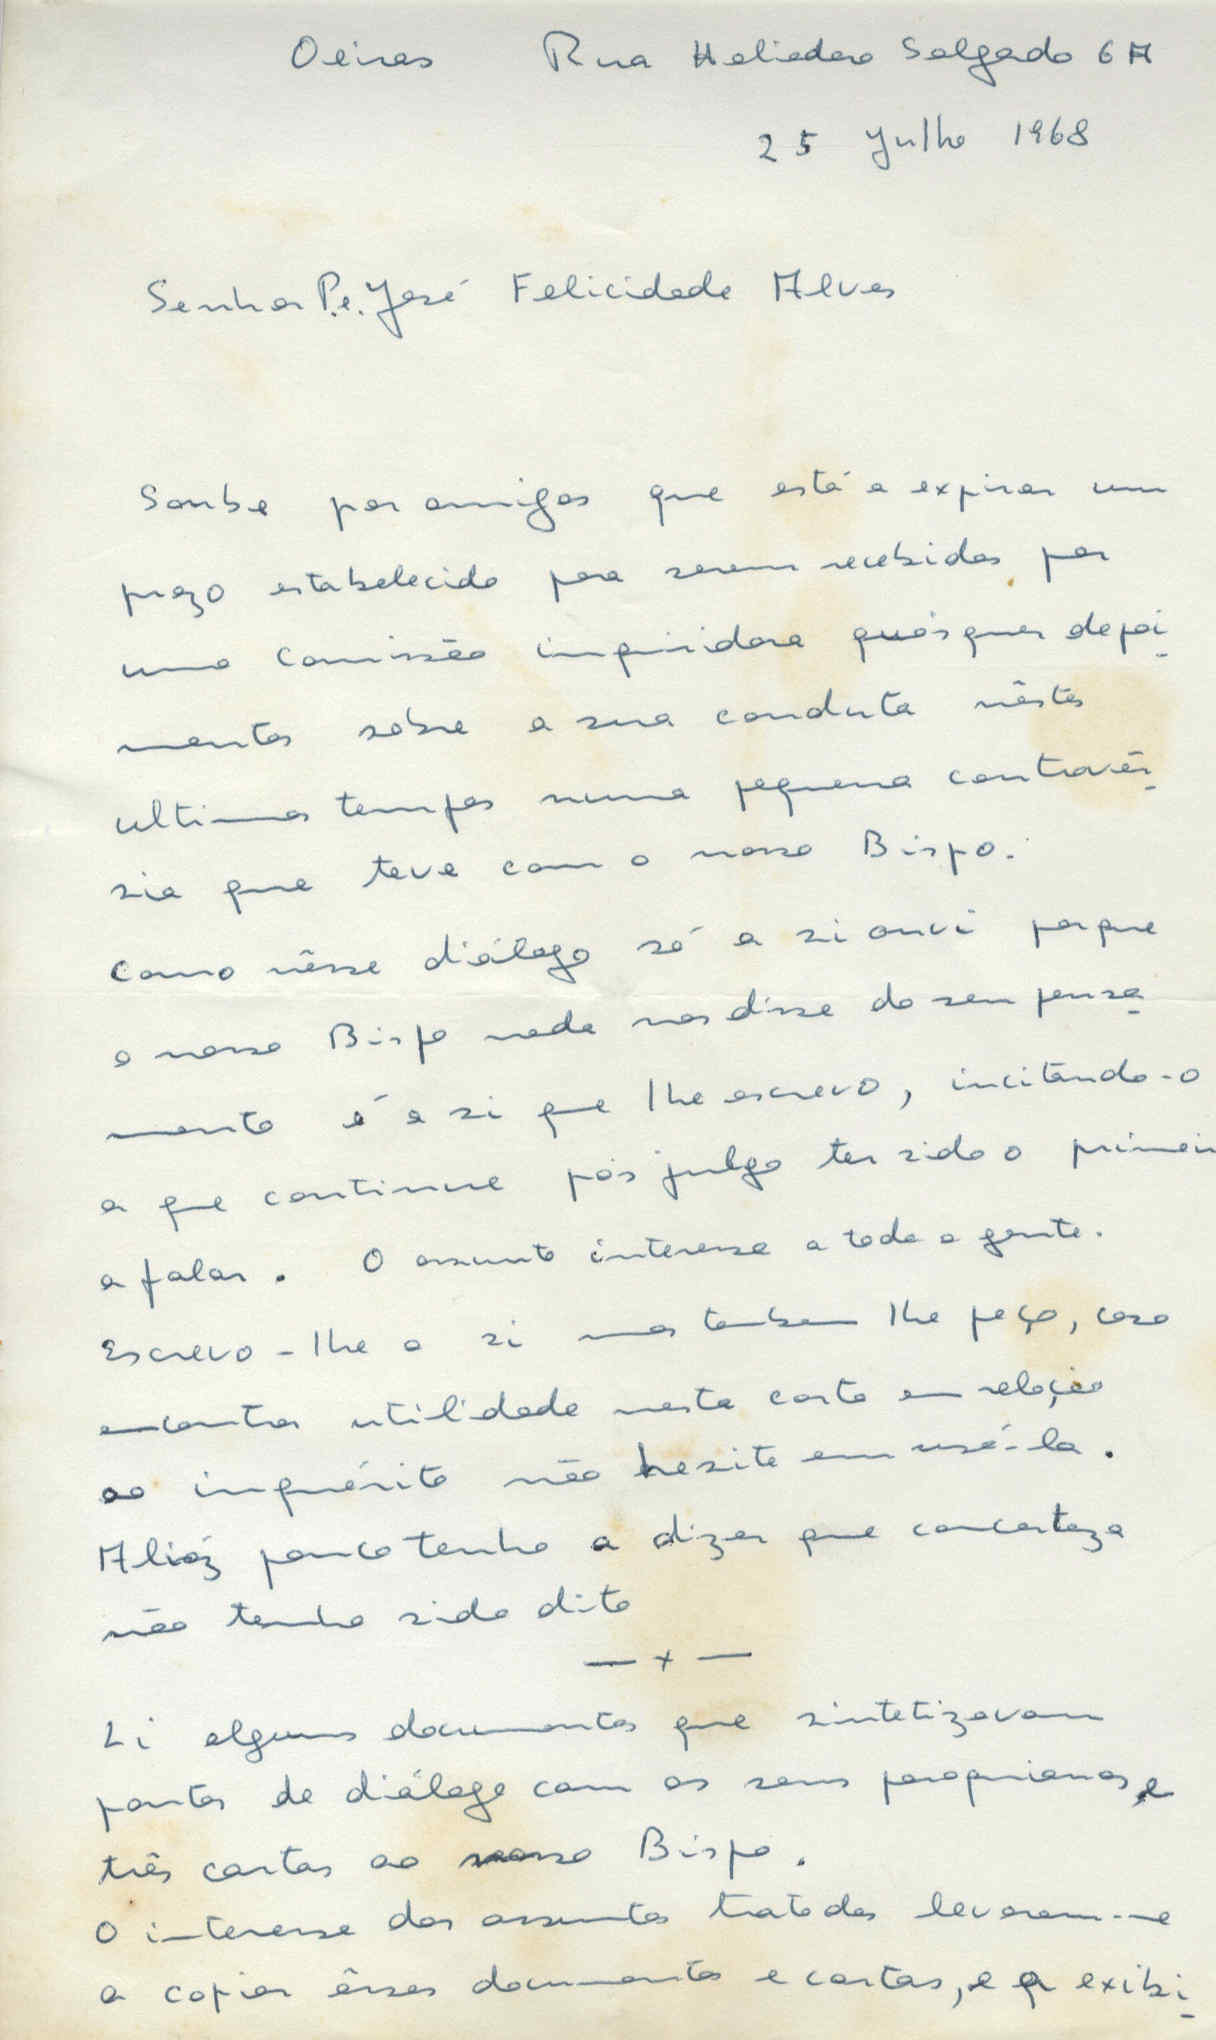 Oeiras Rua Heliodoro Salgado 6A
25 Julho 1968
Senhor P.e. José Felicidade Alves
Soube por amigos que está a expirar um
prazo estabelecido para serem recebidos por
uma comissão inquiridora quáisquer depoi-
mentos sobre a sua conduta nêstes
ultimos tempos numa pequena contravér-
sia que teve com o nosso Bispo.
Como nêsse diálogo só a si ouvi porque
o nosso Bispo nada nos disse do seu pensa-
mento é a si que lhe escrevo, incitando-o
a que continue póis julgo ter sido o primeir
a falar. O assunto interessa a toda a gente.
Escrevo-lhe a si mas tambem lhe peço, caso
encontre utilidade nesta carta em relação
ao inquérito não hesite em usá-la.
Aliáz pouco tenho a dizer que concerteza
não tenha sido dito
— x —
Li alguns documentos que sintetizavam
pontos de diálogo com os seus paroquianos, e
três cartas ao nosso Bispo.
O interesse dos assuntos tratados levaram-me
a copiar êsses documentos e cartas, e a exibi-